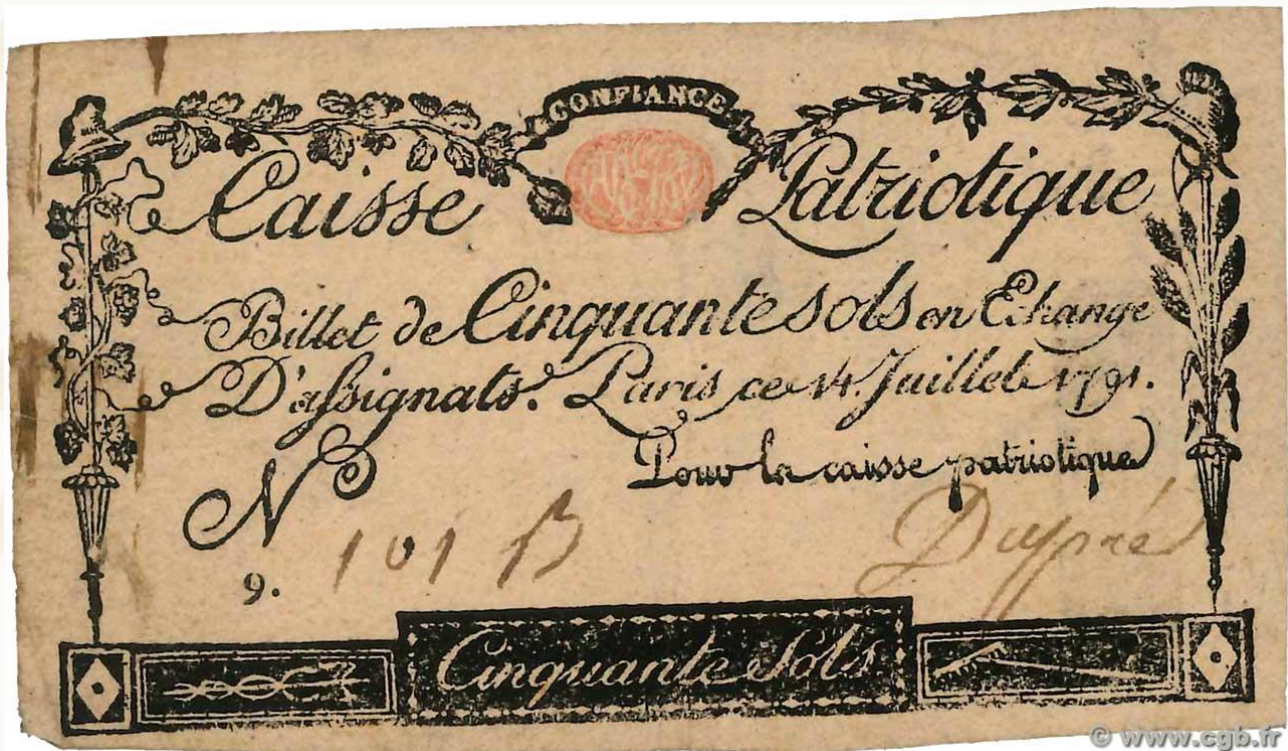 CONFIANCE
Caisse Patriotique
Billet de Cinquante sols en Echange
D'assignats. Paris ce 14. Juillet 1791.
Pour la caisse patriotique
N
101 B
Dupré
9.
Cinquante Sols
© www.cgb.fr